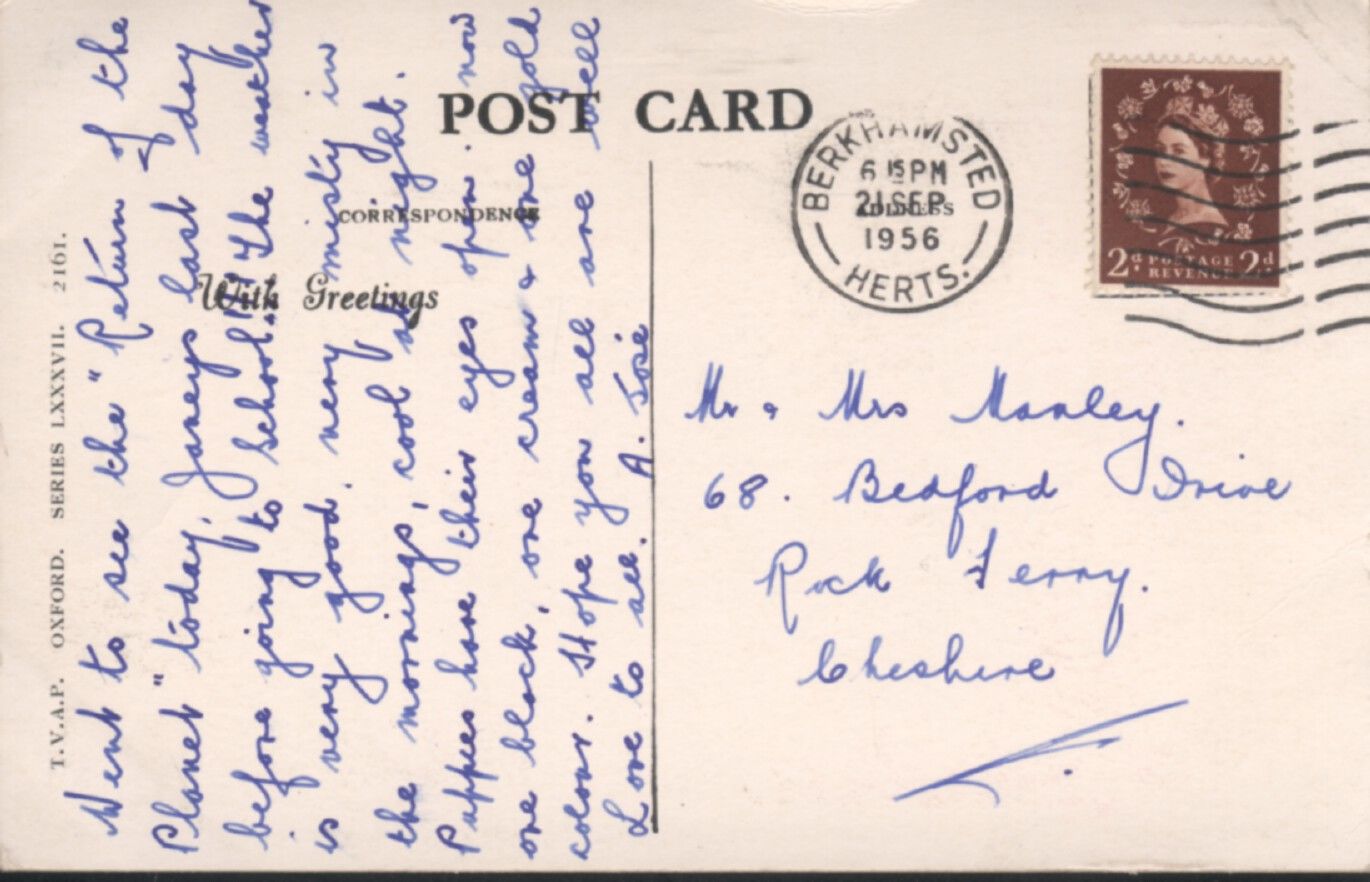 POST CARD
CORRESPONDENCE
ADDRESS
With Greetings
T.V.A.P. OXFORD. SERIES LXXXVII. 2161.
BERKHAMSTED
6 15 PM
21 SEP
1956
HERTS.
2d POSTAGE REVENUE 2d
Went to see the "Return of the
Planet" today, Janeys last day
before going to school!!! The weather
is very good. very misty in
the mornings, cool at night.
Puppies have their eyes open now
one black, one cream & one gold
colour. Hope you all are well
Love to all. A. José
Mr & Mrs Manley.
68. Bedford Drive
Rock Ferry.
Cheshire